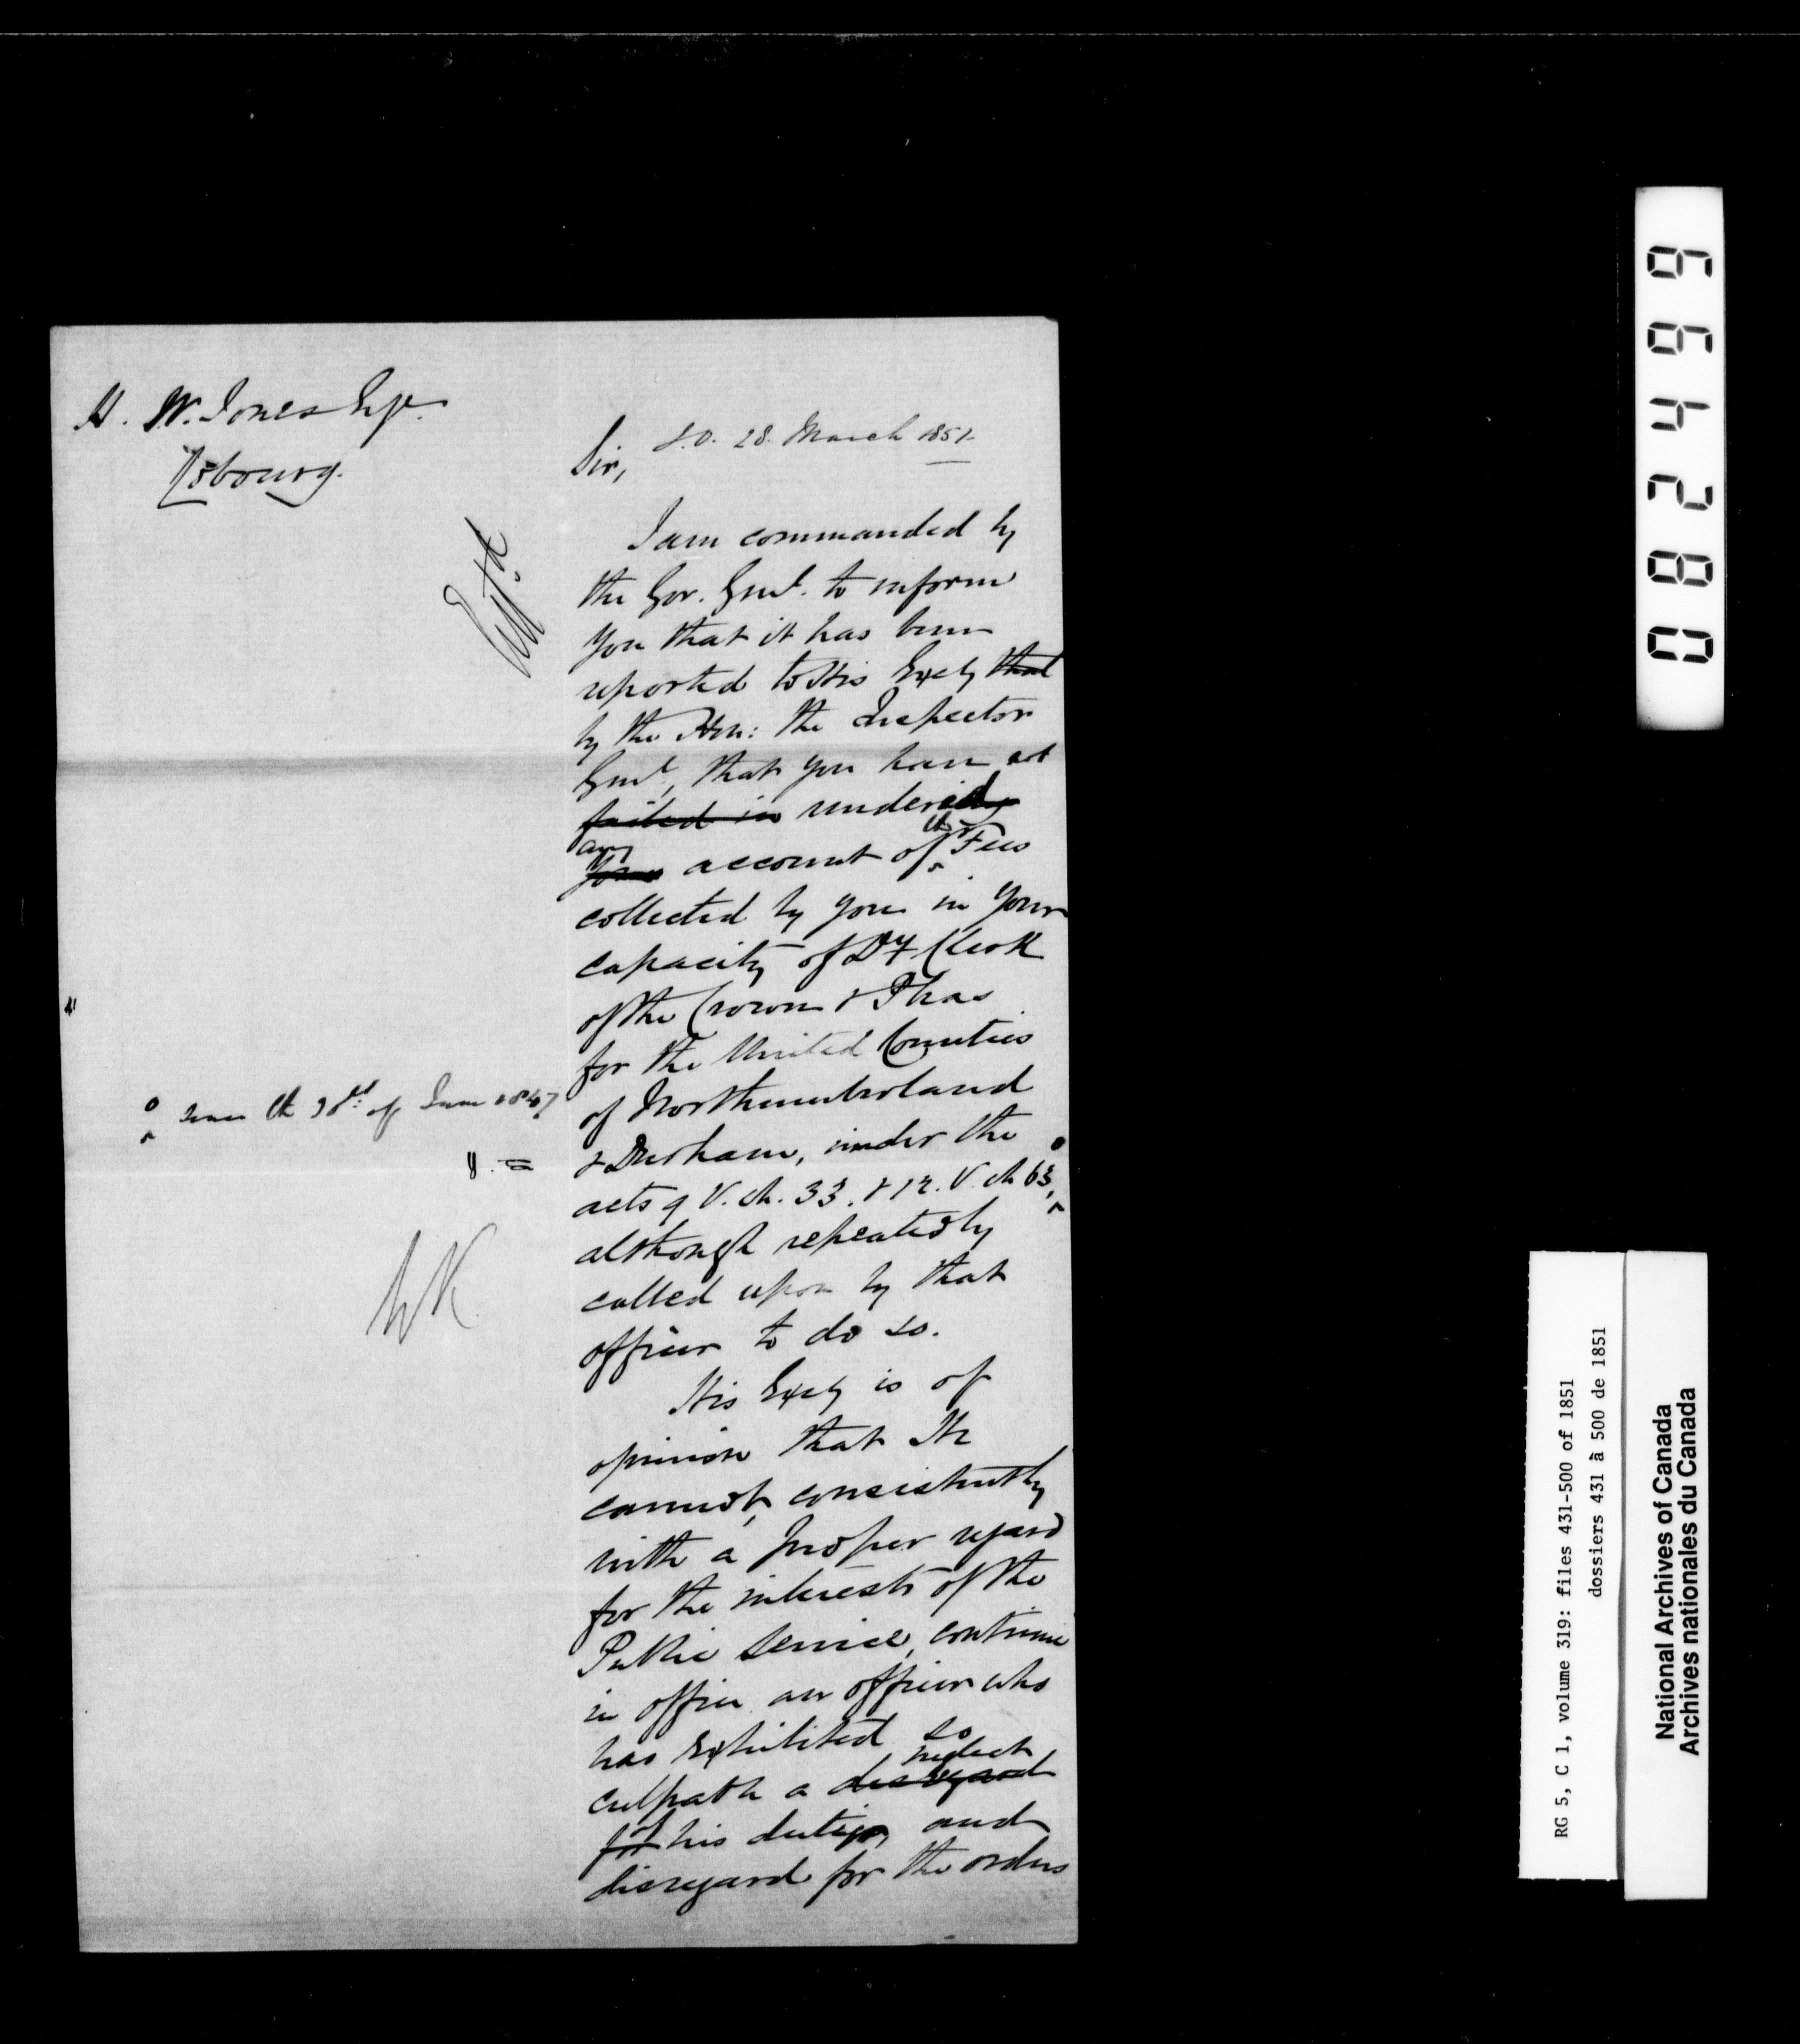 H. W. Jones Esqr.
Cobourg.
S.O. 28. March 1851
Sir,
I am commanded by
the Gov. Genl. to inform
you that it has been
reported to His Excly that
by the Hon: the Inspector
Genl, that you have not
failed in rendered
any account of the Fees
collected by you in your
capacity of Dy Clerk
of the Crown & Pleas
for the United Counties
of Northumberland
& Durham, under the
acts 9 V. ch. 33. & 12. V. ch 63,
since the 30th. of June 1847
although repeatedly
called upon by that
officer to do so.
His Excly is of
opinion that He
cannot, consistently
with a proper regard
for the interests of the
Public Service, continue
in office an officer who
has exhibited so
culpable a disregard neglect
for of his duties, and
disregard for the orders
082499
RG 5, C 1, volume 319: files 431-500 of 1851
dossiers 431 à 500 de 1851
National Archives of Canada
Archives nationales du Canada